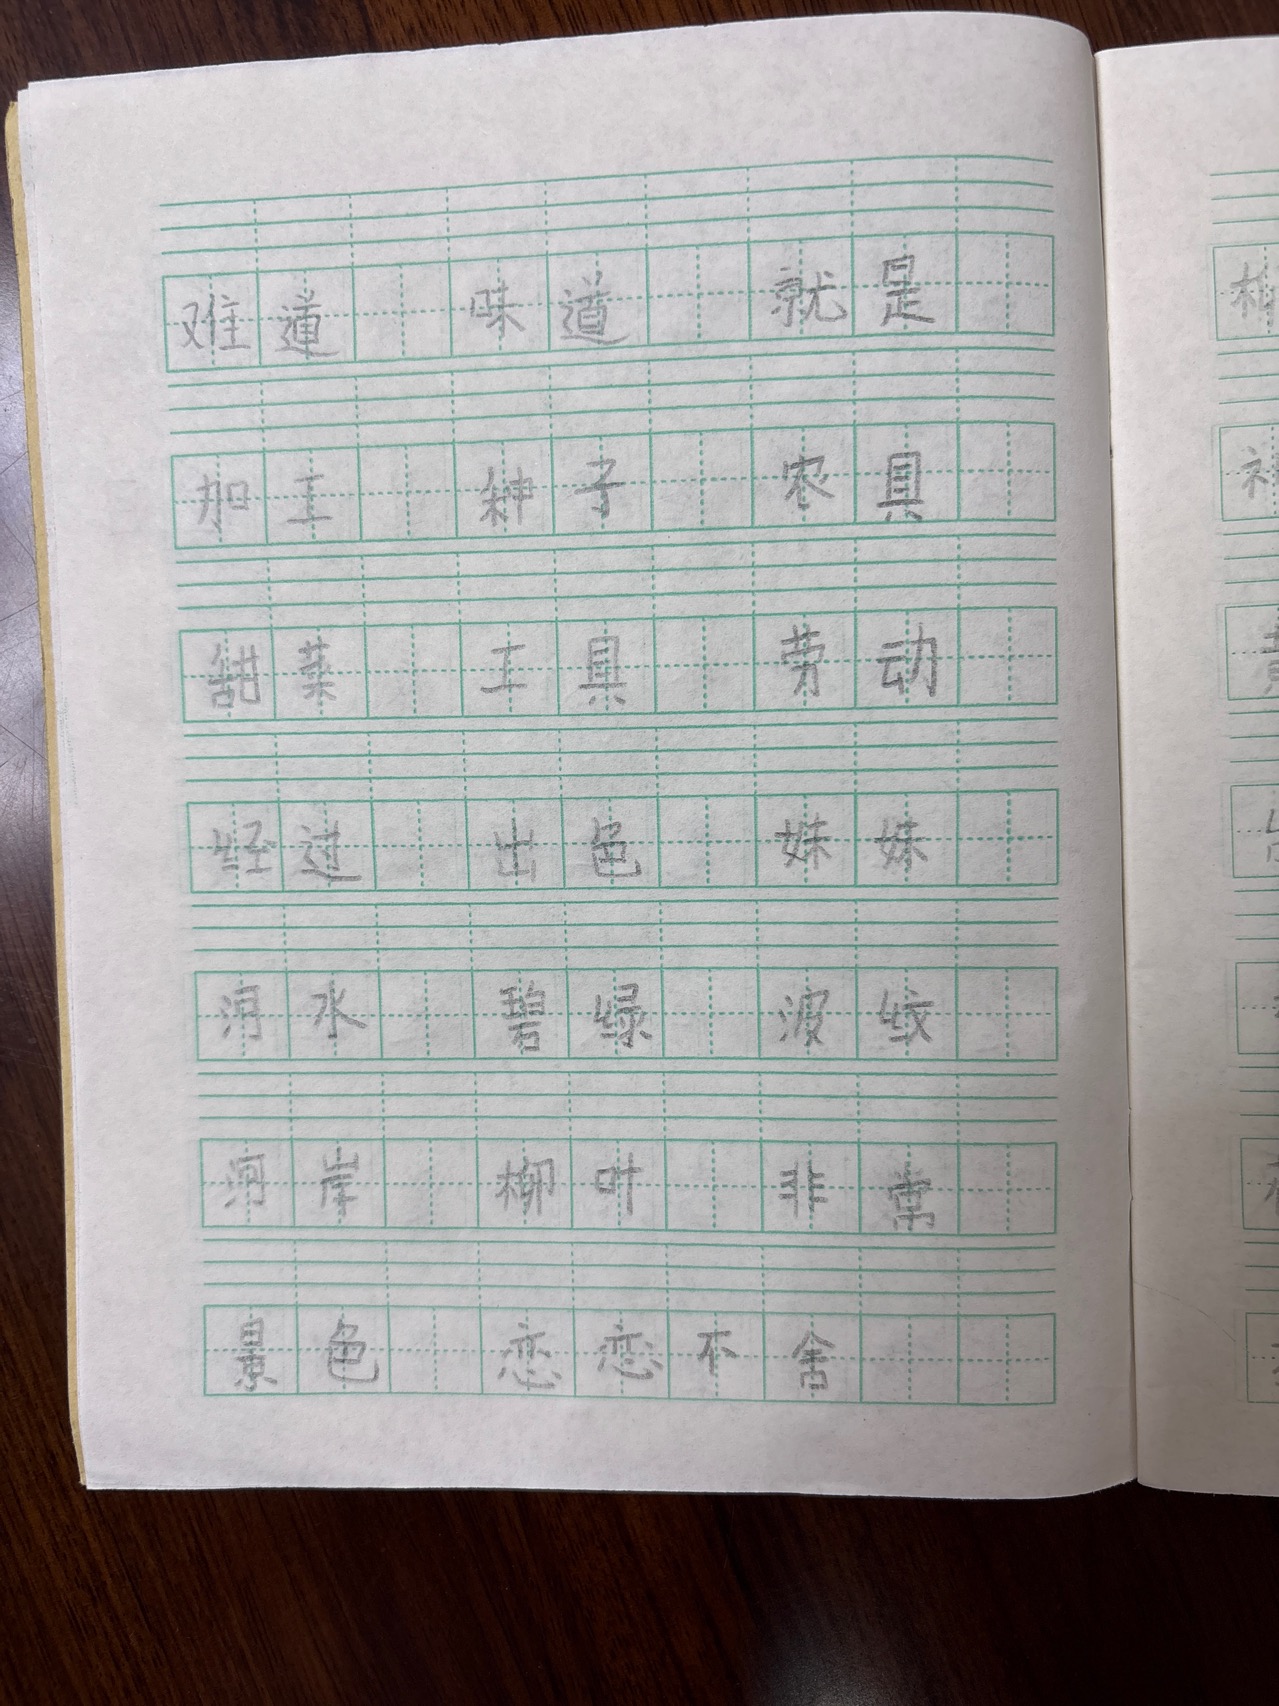 难道 味道 就是
加工 种子 农具
甜菜 工具 劳动
经过 出色 妹妹
河水 碧绿 波纹
河岸 柳叶 非常
景色 恋恋不舍